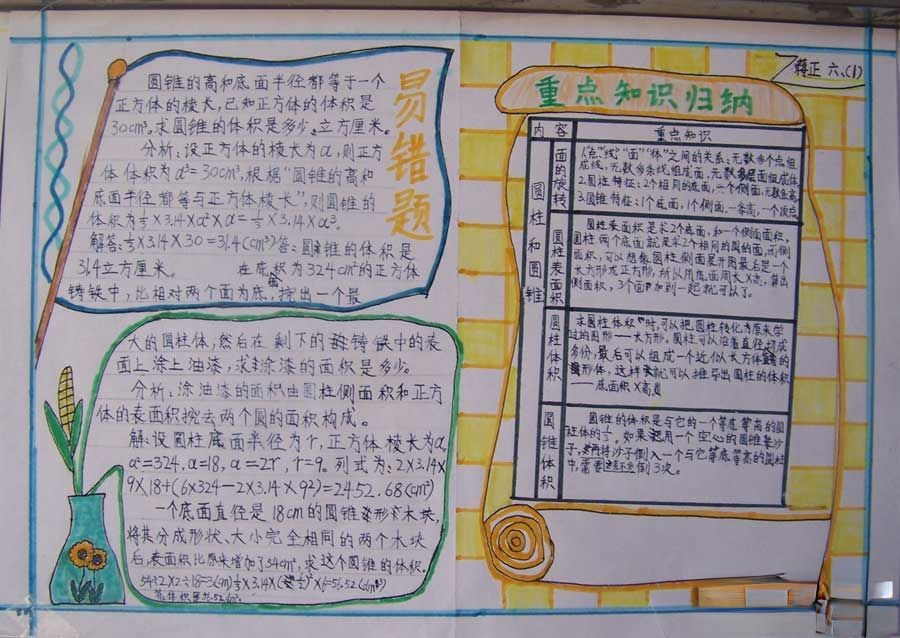 易错题
圆锥的高和底面半径都等于一个
正方体的棱长,已知正方体的体积是
30cm³。求圆锥的体积是多少立方厘米。
分析:设正方体的棱长为a,则正方
体体积为a³=30cm³,根据“圆锥的高和
底面半径都等与正方体棱长”,则圆锥的
体积为⅓×3.14×a²×a=⅓×3.14×a³。
解答:⅓×3.14×30=31.4(cm³)答:圆锥的体积是
31.4立方厘米。 在底面积为324cm²的正方体
铸铁中,以相对两个面为底,挖出一个最
大的圆柱体,然后在剩下的铸铁中的表
面上涂上油漆,求涂漆的面积是多少。
分析:涂油漆的面积由圆柱侧面积和正方
体的表面积挖去两个圆的面积构成。
解:设圆柱底面半径为r,正方体棱长为a。
a²=324,a=18,a=2r,r=9。列式为:2×3.14×
9×18+(6×324-2×3.14×9²)=2452.68(cm²)
一个底面直径是18cm的圆锥形木块,
将其分成形状、大小完全相同的两个木块
后,表面积比原来增加了54cm²,求这个圆锥的体积。
54÷2×2÷18=3(cm)
蒋正 六、(1)
重点知识归纳
内容 重点知识
圆柱和圆锥
面的旋转
1.“点”“线”“面”“体”之间的关系:无数多个点组
成线,无数多条线组成面,无数多层面组成体
2.圆柱特征:2个相同的底面,一个侧面,无数条高
3.圆锥特征:1个底面,1个侧面,一条高,一个顶点
圆柱表面积
圆柱表面积是求2个底面,和一个侧面面积,
圆柱两个底面就是求2个相同的圆的面,而侧
面积,可以想像圆柱侧面展开图最后是一个
长方形或正方形,所以用底面周长×高,算出
侧面积,3个面加到一起就可以了。
圆柱体积
求圆柱体积时,可以把圆柱转化为原来学
过的图形——长方形,圆柱可以沿着直径切成
多份,最后可以组成一个近似长方体的
形体,这样就可以推导出圆柱的体积
——底面积×高
圆锥体积
圆锥的体积是与它的一个等底等高的圆
柱体的⅓。如果用一个空心的圆锥装沙
子,再将沙子倒入一个与它等底等高的圆柱
中,需要倒3次。